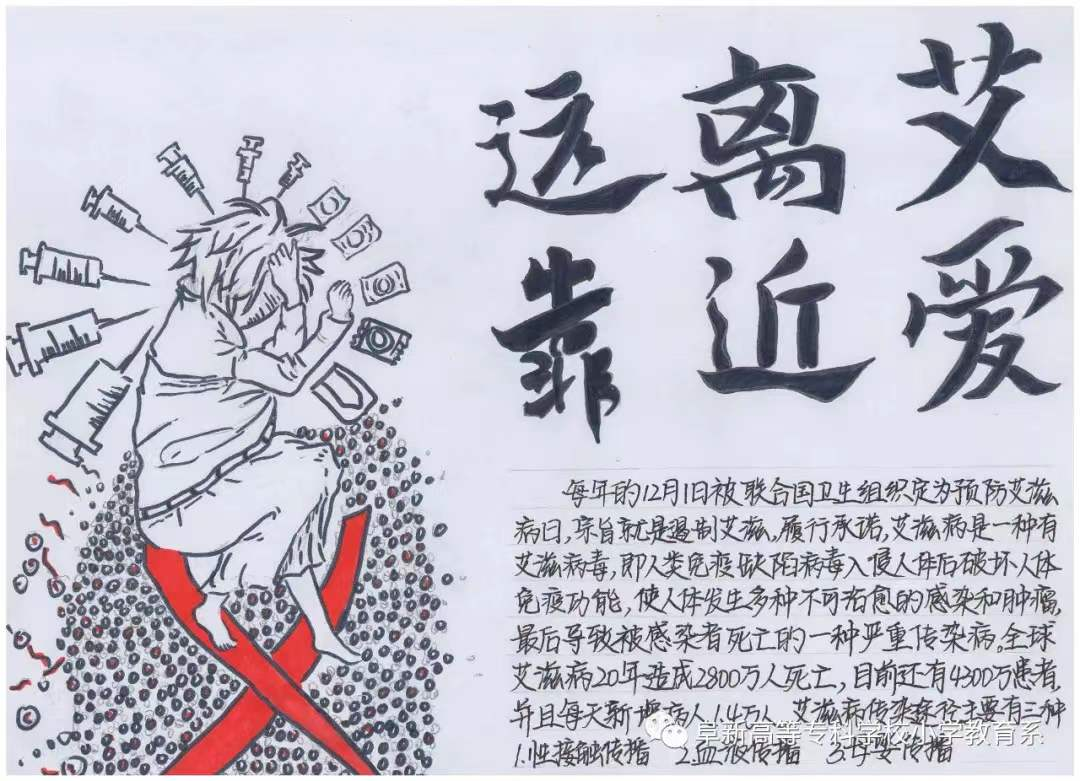 远离艾
靠近爱
每年的12月1日被联合国卫生组织定为预防艾滋
病日,宗旨就是遏制艾滋,履行承诺,艾滋病是一种有
艾滋病毒,即人类免疫缺陷病毒入侵人体后破坏人体
免疫功能,使人体发生多种不可治愈的感染和肿瘤,
最后导致被感染者死亡的一种严重传染病。全球
艾滋病20年造成2800万人死亡,目前还有4300万患者,
并且每天新增病人1.4万人 艾滋病传染途径主要有三种
1.性接触传播 2.血液传播 3.母婴传播
阜新高等专科学校小学教育系